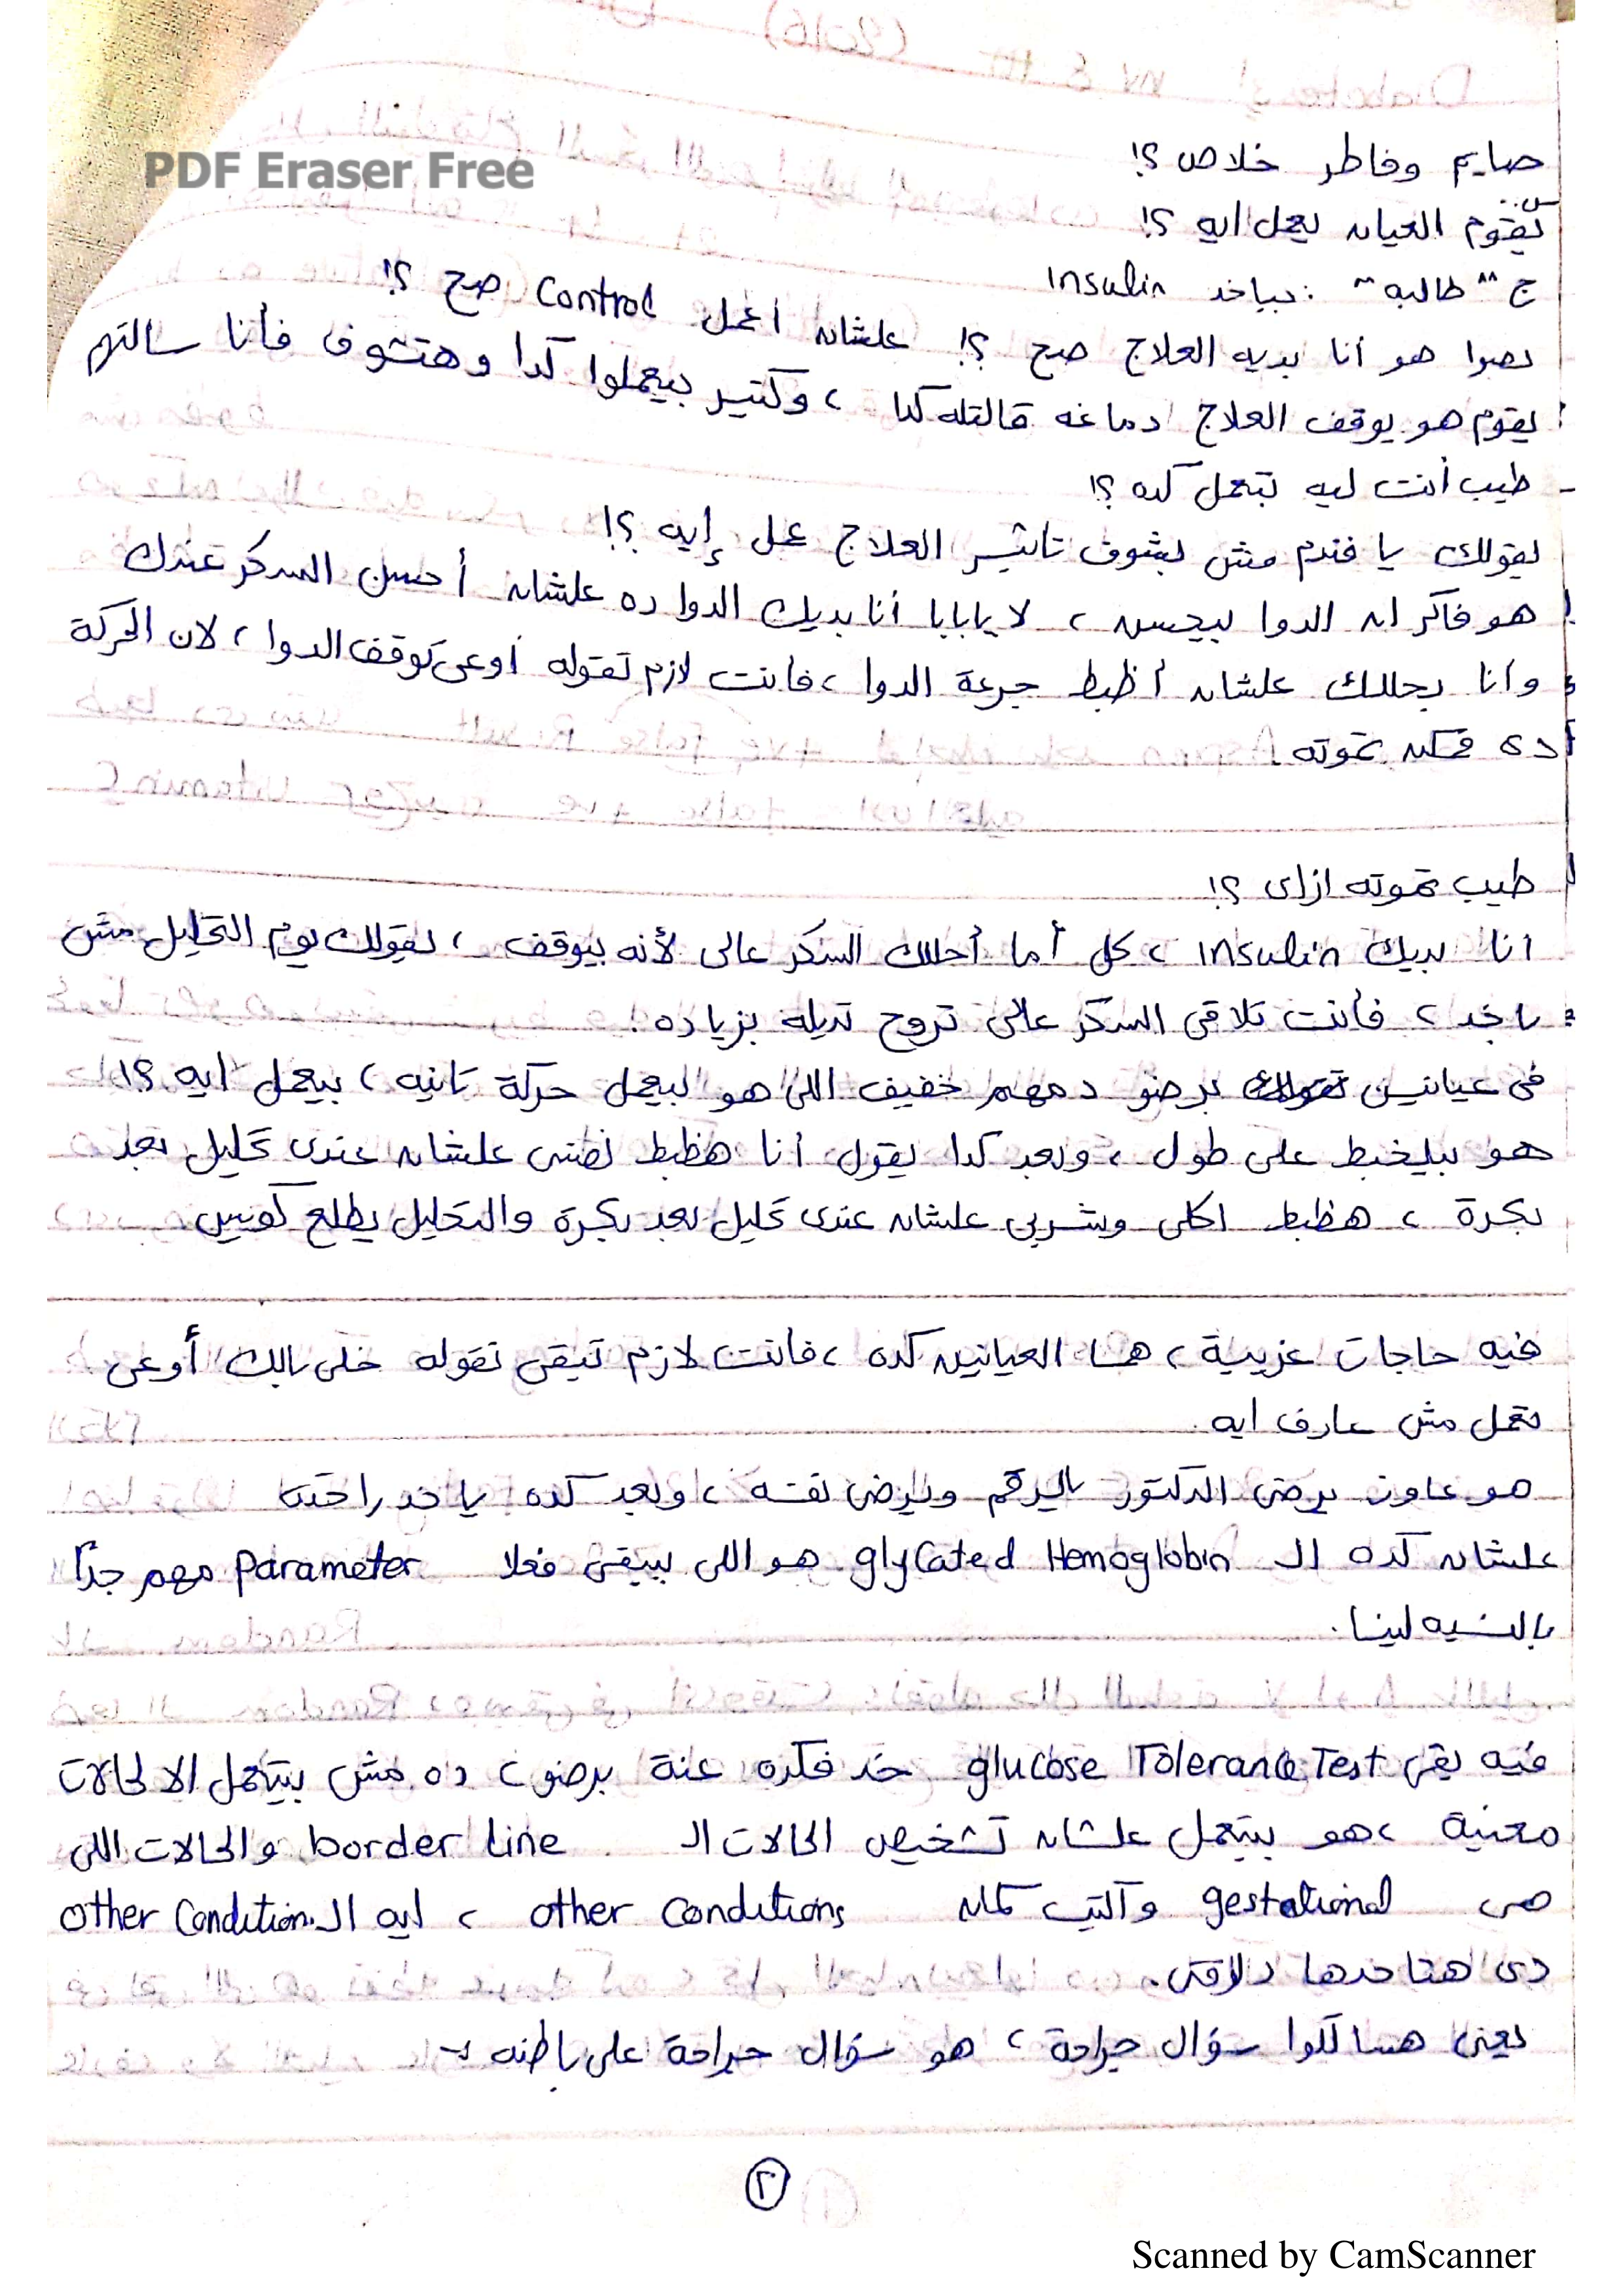 PDF Eraser Free
صايم وفاطر خلاص ؟!
س.. يقوم العيان يعمل ايه ؟!
ج " طالبه " : بياخد Insulin
بصوا هو أنا بديه العلاج صح ؟! علشان أعمل Control صح ؟!
يقوم هو يوقف العلاج دماغه قالتله كدا ، وكتير بيعملوا كدا وهتشوف فأنا سالتهم
- طيب أنت ليه تبعمل كده ؟!
يقولك يا فندم مش بشوف تاثير العلاج عمل إيه ؟!
هو فاكر ان الدوا بيحسن ، لا يا بابا أنا بديك الدوا ده علشان أحسن السكر عندك
وأنا بحللك علشان أظبط جرعة الدوا ، فأنت لازم تقوله أوعى توقف الدوا ، لان الحركة
دى ممكن تموته .
طيب تموته ازاى ؟!
انا بديك Insulin ، كل أما أحللك السكر عالى لأنه بيوقف ، يقولك يوم التحليل مش
باخد ، فأنت تلاقى السكر عالى تروح تديله بزياده .
فى عيانين برضو دمهم خفيف اللى هو بيعمل حركة تانيه ، بيعمل ايه ؟!
هو بيلخبط على طول ، وبعد كدا يقول أنا هظبط نفسى علشان عندى تحليل بعد
بكرة ، هظبط اكلى وشربى علشان عندى تحليل بعد بكرة والتحليل يطلع كويس
فيه حاجات غريبة ، هما العيانين كده ، فأنت لازم تبقى تقوله خلى بالك أوعى
تعمل مش عارف ايه .
هو عاوز يرضى الدكتور بالرقم ويرضى نفسه ، وبعد كده ياخد راحته
علشان كده الـ glycated Hemoglobin هو اللى بيبقى فعلا parameter مهم جداً
بالنسبه لينا .
فيه بقى glucose Tolerance Test خد فكره عنة برضو ، ده مش بيتعمل الا لحالات
معنية ، هو بيتعمل علشان تشخيص الحالات الـ border line والحالات اللى
هى gestational وآكتب كمان other conditions ، ايه الـ other conditions
دى هتاخدها دلوقتى .
يعنى هسالكوا سؤال جراحة ، هو سؤال جراحة على باطنه :-
٢
Scanned by CamScanner